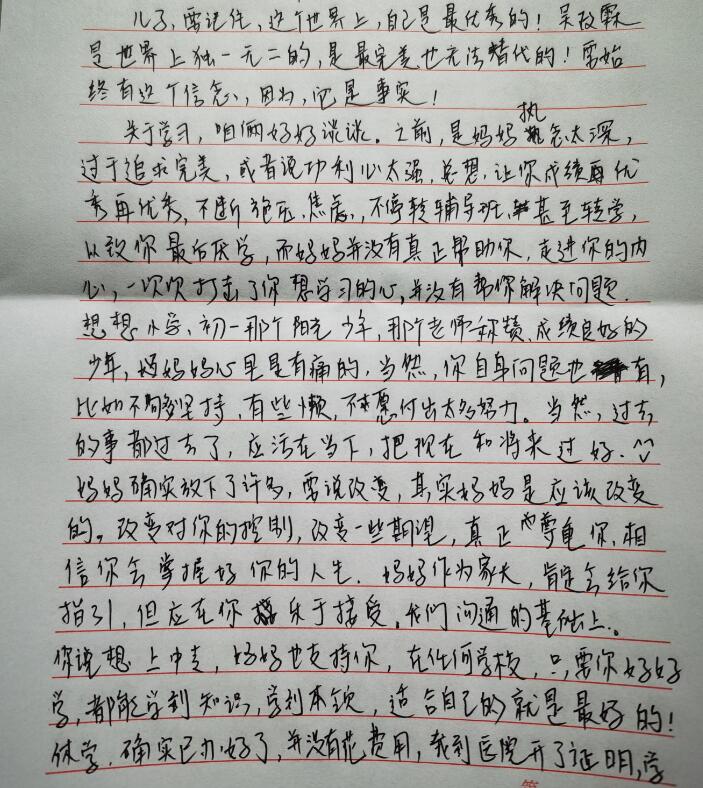 儿子，需记住，这个世界上，自己是最优秀的！吴
是世界上独一无二的，是最完美也无法替代的！需始
终有这个信念，因为，它是事实！
关于学习，咱俩好好谈谈。之前，是妈妈执念太深，
过于追求完美，或者说功利心太强，总想让你成绩再优
秀再优秀，不断施压、焦虑，不停转辅导班，甚至转学，
以致你最后厌学，而妈妈并没有真正帮助你，走进你的内
心，一次次打击了你想学习的心，并没有帮你解决问题．
想想小学、初一那个阳光少年，那个老师称赞、成绩良好的
少年，妈妈心里是有痛的，当然，你自身问题也有，
比如不够坚持，有些懒，不愿付出太多努力。当然，过去
的事都过去了，应活在当下，把现在和将来过好．^^
妈妈确实放下了许多，要说改变，其实妈妈是应该改变
的。改变对你的控制，改变一些期望，真正尊重你，相
信你会掌握好你的人生．妈妈作为家长，肯定会给你
指引，但应在你乐于接受，我们沟通的基础上．
你说想上中专，妈妈也支持你，在任何学校，只要你好好
学，都能学到知识，学到本领，适合自己的就是最好的！
休学，确实已办好了，并没有花费用，我到医院开了证明，学